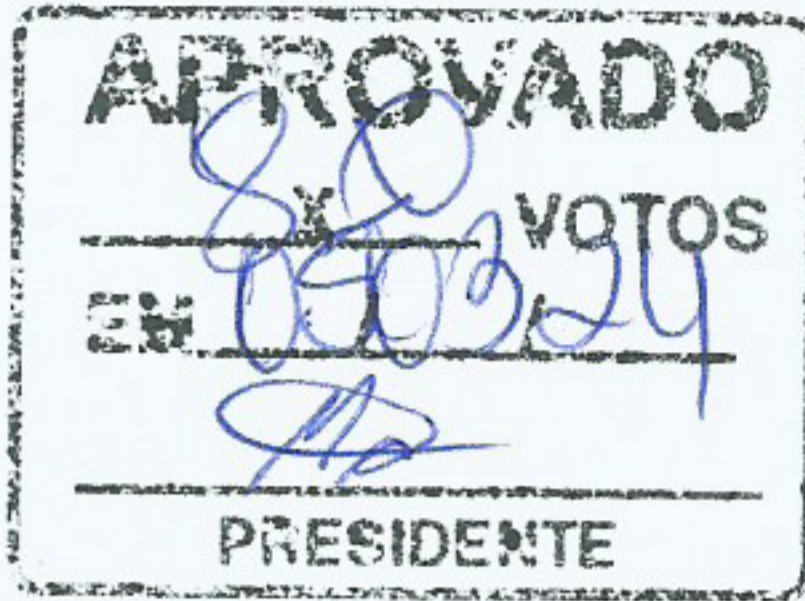 APROVADO
8 X 0 VOTOS
EM 05/03/24
PRESIDENTE